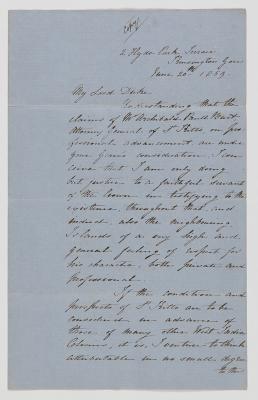 Copy
2 Hyde Park Terrace
Kensington Gore
June 20th 1859
My Lord Duke
Understanding that the
claims of Mr Archibald Paull Burt
Attorney General of St Kitts on pro
fessional advancement are under
your Grace's consideration, I con
ceive that I am only doing
but justice to a faithful servant
of the Crown in testifying to the
existence, throughout that, and
indeed, also the neighbouring
Islands of a very high and
general feeling of respect for
his character, both private and
professional.
If the condition and
prospects of St Kitts are to be
considered in advance of
those of many other West Indian
Colonies, it is, I venture to think
attributable in no small degree
to the